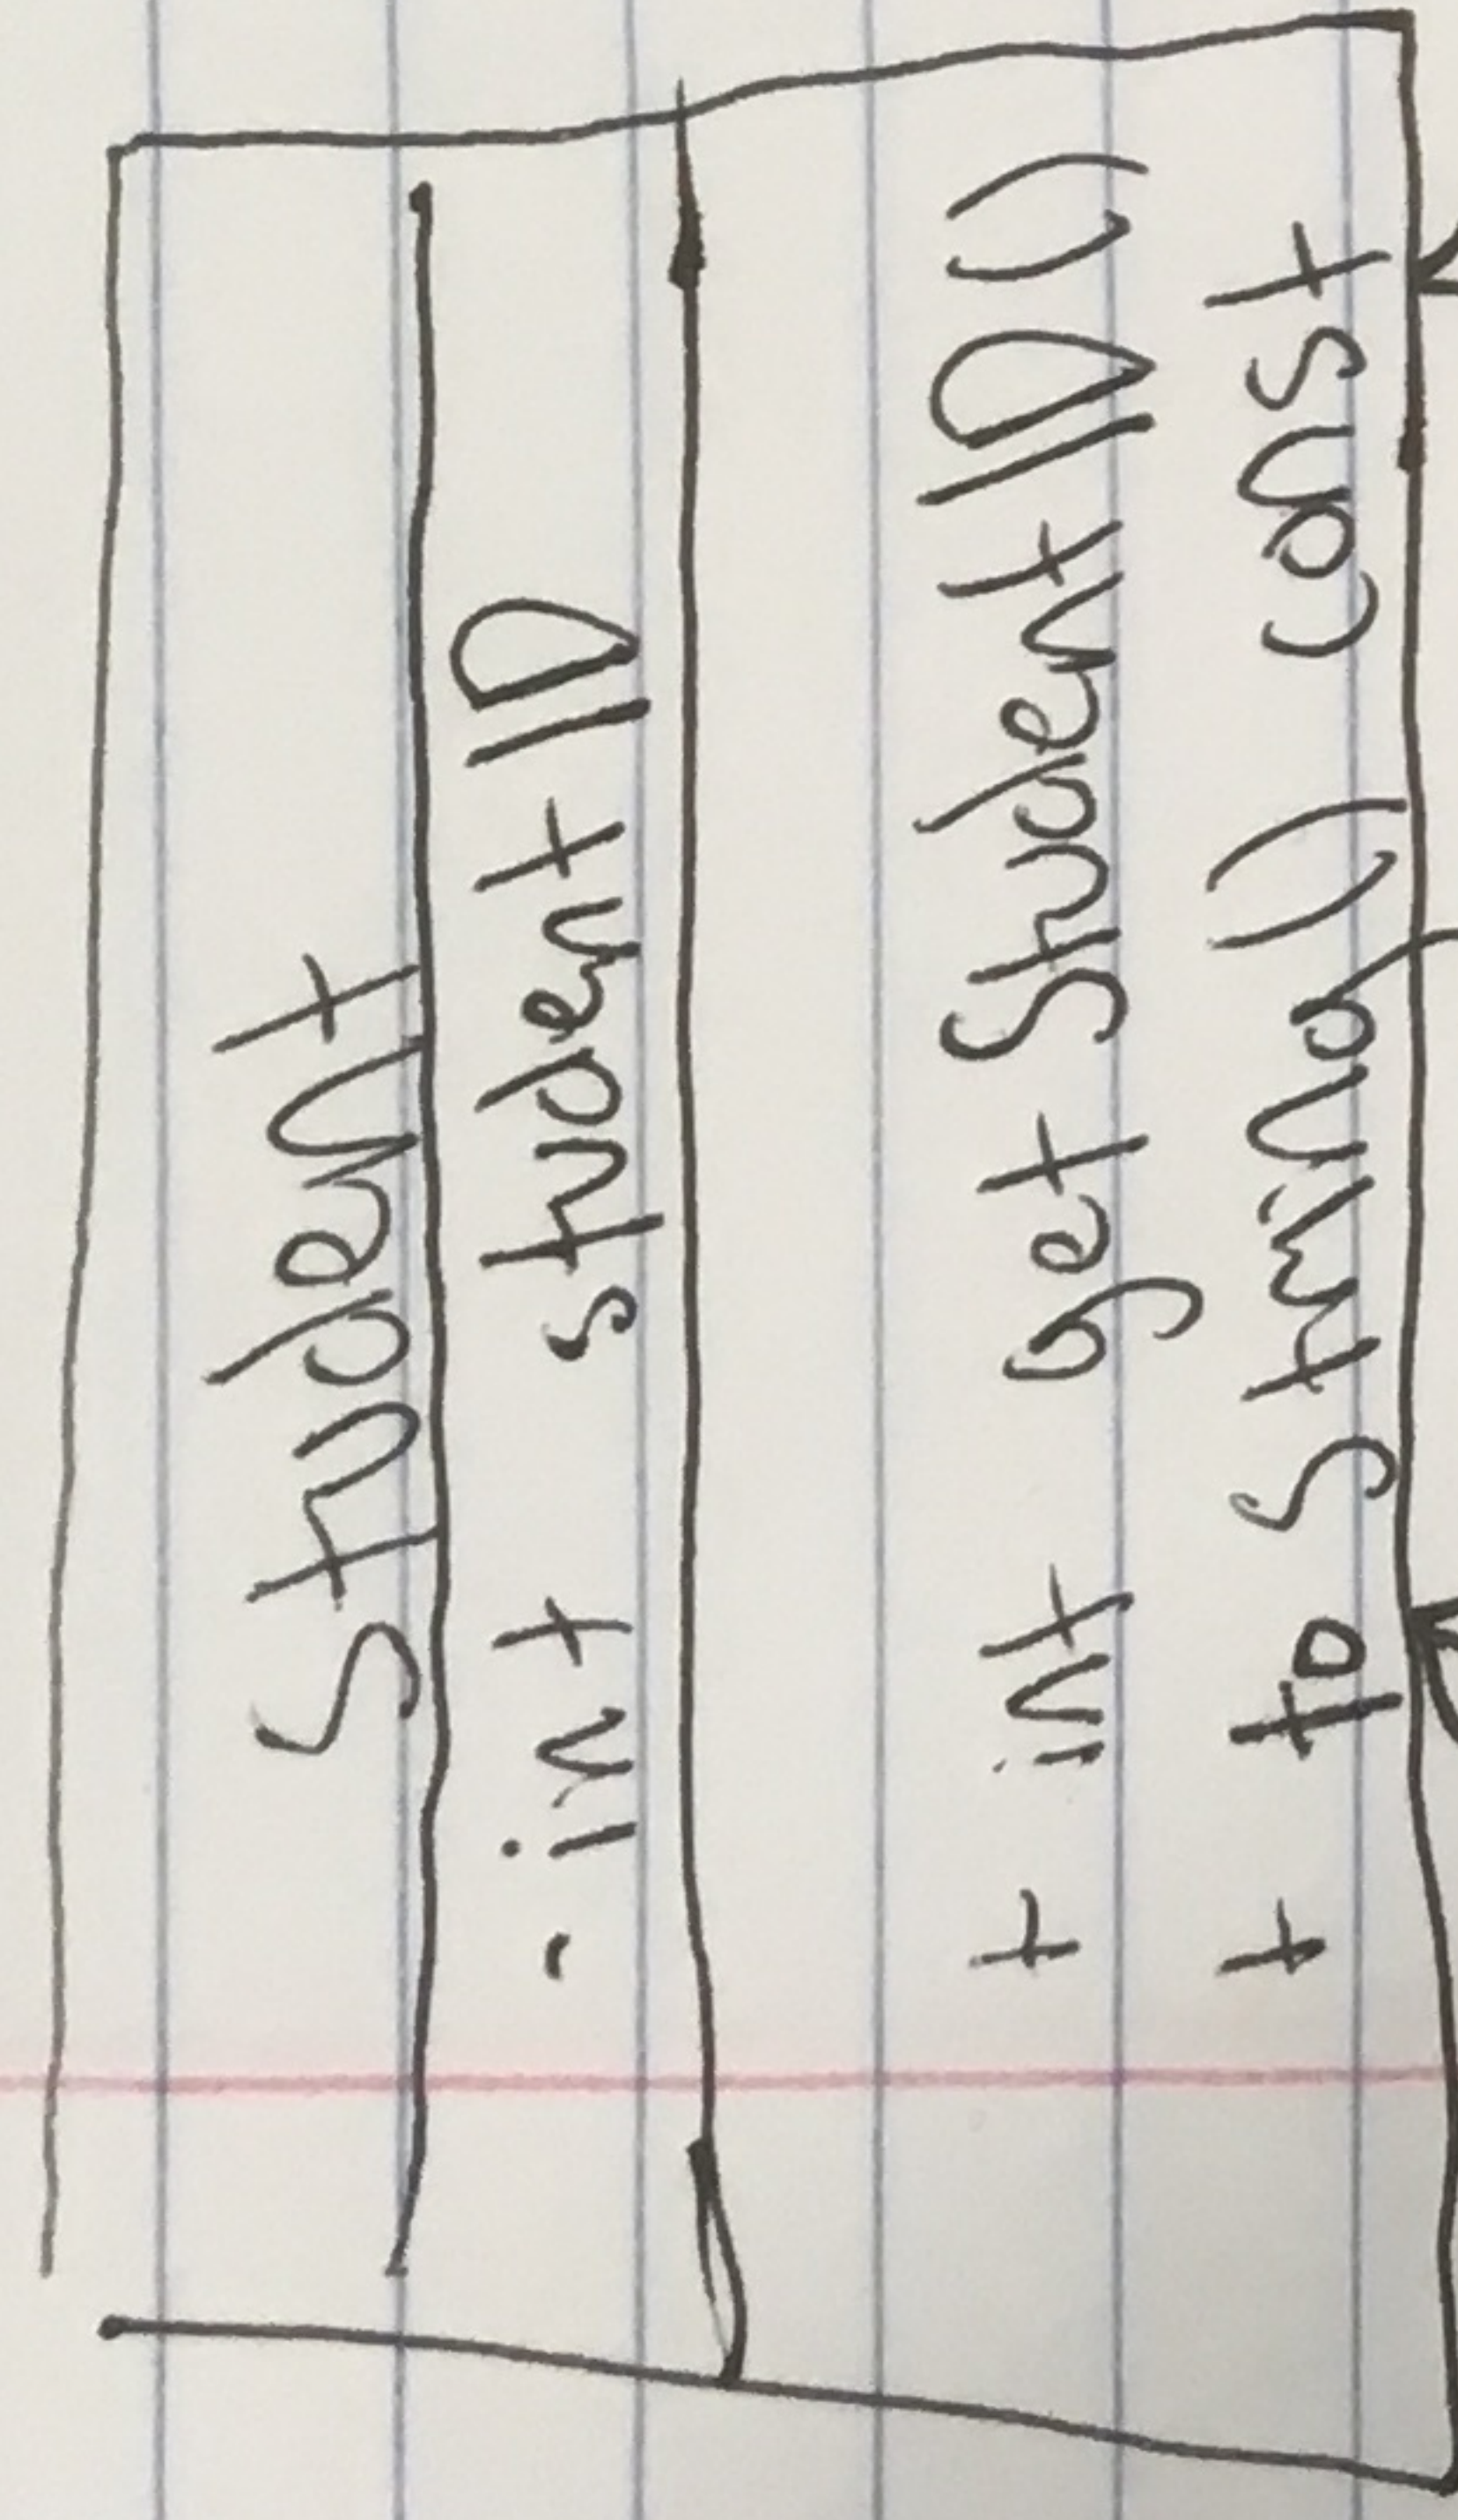 Student
- int studentID
+ int getStudentID()
+ toString() const